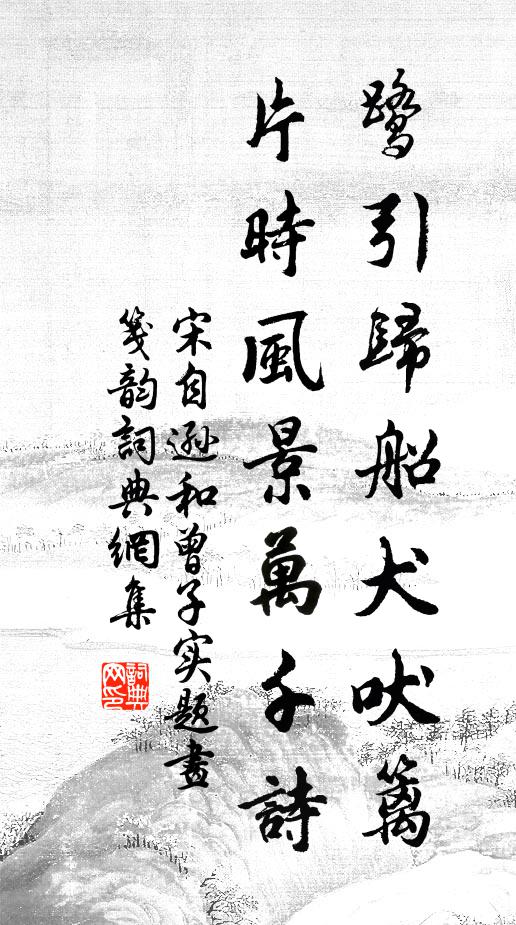 鷺引歸船犬吠籬
片時風景萬千詩
宋自遜和曾子实题畫
箋韵詞典網集
詞典網印